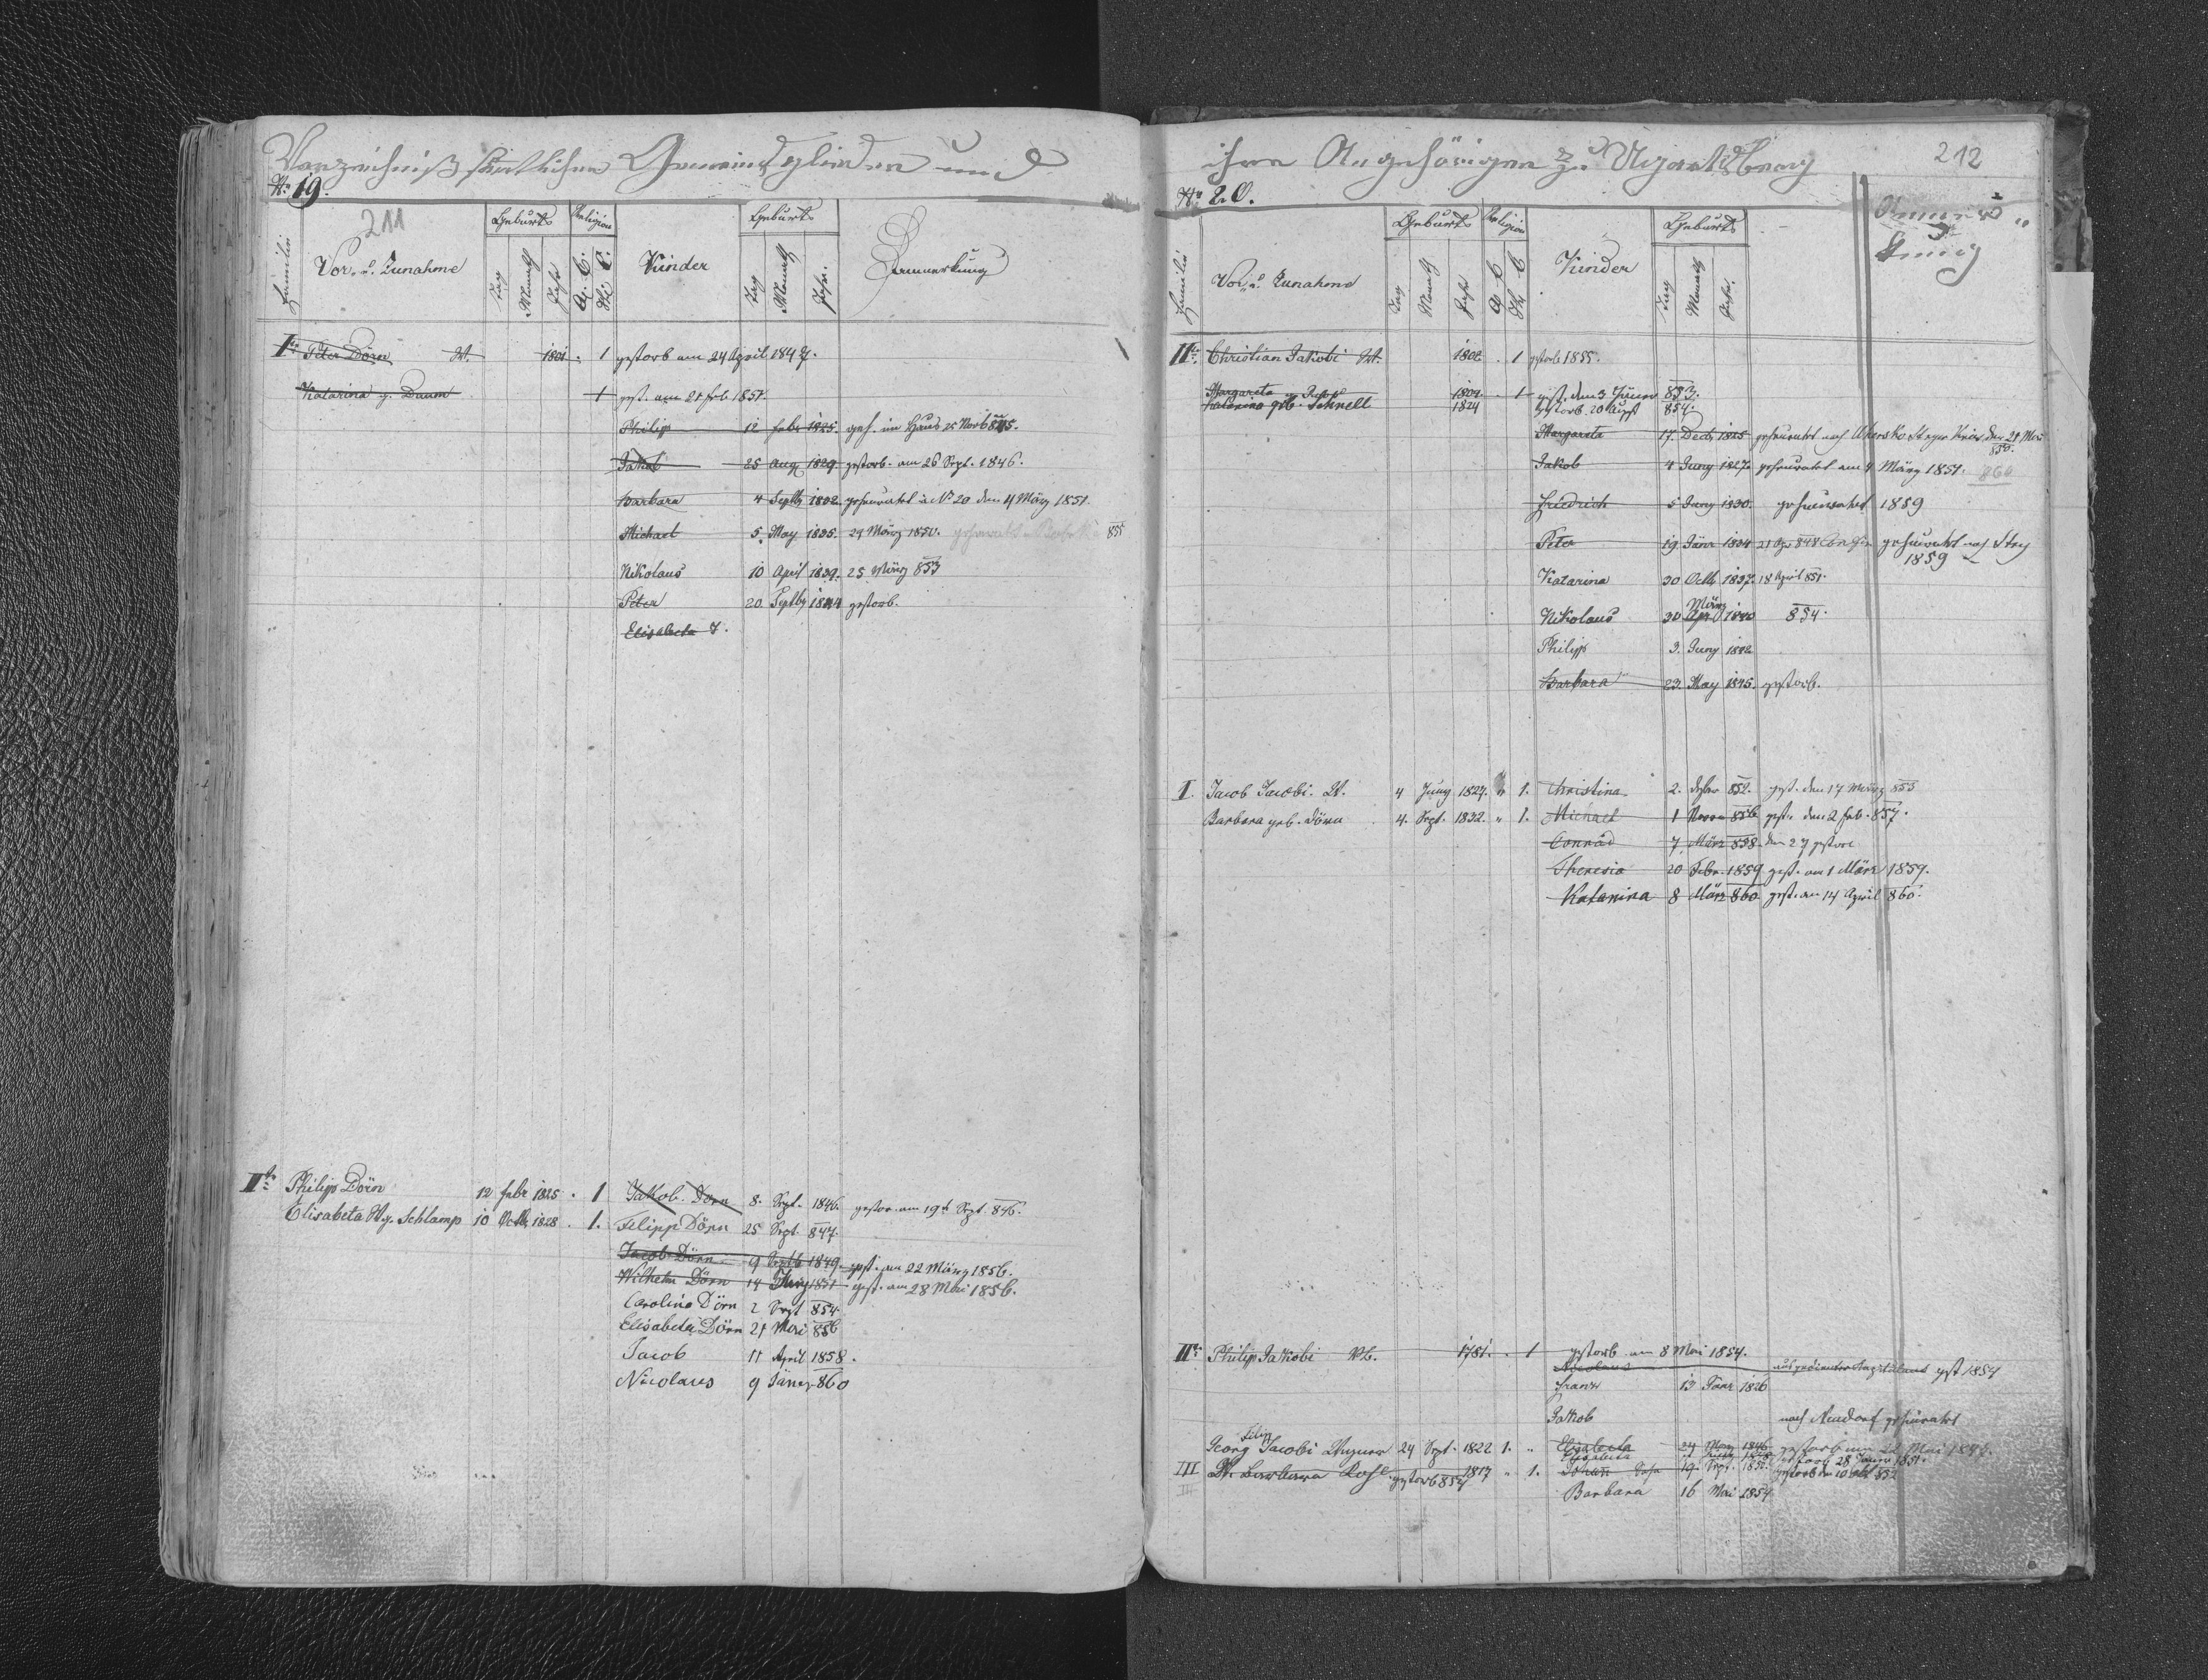 Verzeichniß sämtlicher Gemeindglieder und
No. 19.
211
Familie
Vor- u. Zunahme
Geburts
Tag
Monath
Jahr
Religion
A. C.
H. C.
Kinder
Geburts
Tag
Monath
Jahr.
Anmerkung
Ite Peter Dörn W. 1801 . 1 gestorb am 24 April 1847.
Katarina g. Daum 1 gest. am 21 feb 1851.
Philipp 12 febr 1825. geh. im Haus 25 Novb 845.
Jakob 25 Aug 1829 gestorb. am 26 Sept. 1846.
Barbara 4 Septb 1832 geheurathet in No 20 den 4 März 1851.
Michael 5. May 1835. 29 März 1850. geheurathet 855
Nikolaus 10 April 1839. 25 März 853
Peter 20 Septb 1844 gestorb.
Elisabeta †.
IIte Philipp Dörn 12 febr 1825 . 1 Jakob Dörn 8. Sept. 1846. gestor. am 19t Sept. 846.
Elisabeta W. g. Schlamp 10 Octb 1828 . 1. Filipp Dörn 25 Sept. 847.
Jacob Dörn 9 Septb 1849. gest. am 22 März 1856.
Wilhelm Dörn 14 Juny 1851 gest. am 28 Mai 1856.
Carolina Dörn 2 Sept 854.
Elisabeta Dörn 21 Mai 856
Jacob 11 April 1858.
Nicolaus 9 Jäner 860
ihre Angehörigen zu Ugartsberg
212
No. 20.
Familie
Vor- u. Zunahme
Geburts
Tag
Monath
Jahr
Religion
A C
H C
Kinder
Geburts
Tag
Monath
Jahr.
Anmerkung
IIte Christian Jakobi W. 1802 . 1 gestorb 1855.
Margareta 1802 . 1 gest. den 3 Jäner 853.
Katarina geb. Schnell 1824 gestorb. 20 Augst 854.
Margareta 17. Decb 1825 geheurathet nach
855.
Jakob 4 Juny 1827 geheurathet am 4 März 1851. 860
Friedrich 5 Juny 1830. geheurathet 1859
Peter 19 Jänr 1834 21 Apr 848 geheurathet nach Stry
1859
Katarina 30 Octb 1837. 18 April 851.
März
Nikolaus 30 Apr 1840 854.
Philipp 3. Juny 1842
Barbara 23. May 1845. gestorb.
I. Jacob Jacobi. W. 4 Juny 1827. " 1. Christina 2. 852. gest. den 17 März 853
Barbara geb. Dörn 4. Sept. 1832. " 1. Michael 1 856 gest. den 2 Feb. 857.
Conrad 7 März 858. den 27 gestorb
Theresia 20 Febr. 1859 gest. am 1 März 1859.
Katarina 8 März 860 gest. am 14 April 860.
IIte Philip Jakobi Wb. 1781. . 1 gestorb am 8 Mai 1854.
Nicolaus gest 1854
Franz 13 Jänr 1826
Jakob nach Neudorf geheurathet
Filip
Georg Jacobi 24 Sept. 1822 1. " Elisabeta 24 May 1846 gestorb am 22 Mai 1846.
Elisabeta 1848 gestorb 28 Jäner 1851.
III W. Barbara gestorb 854 1817 " 1. Johan 19. Sept. 1852. gestorb den 10 853
III
Barbara 16 Mai 1854